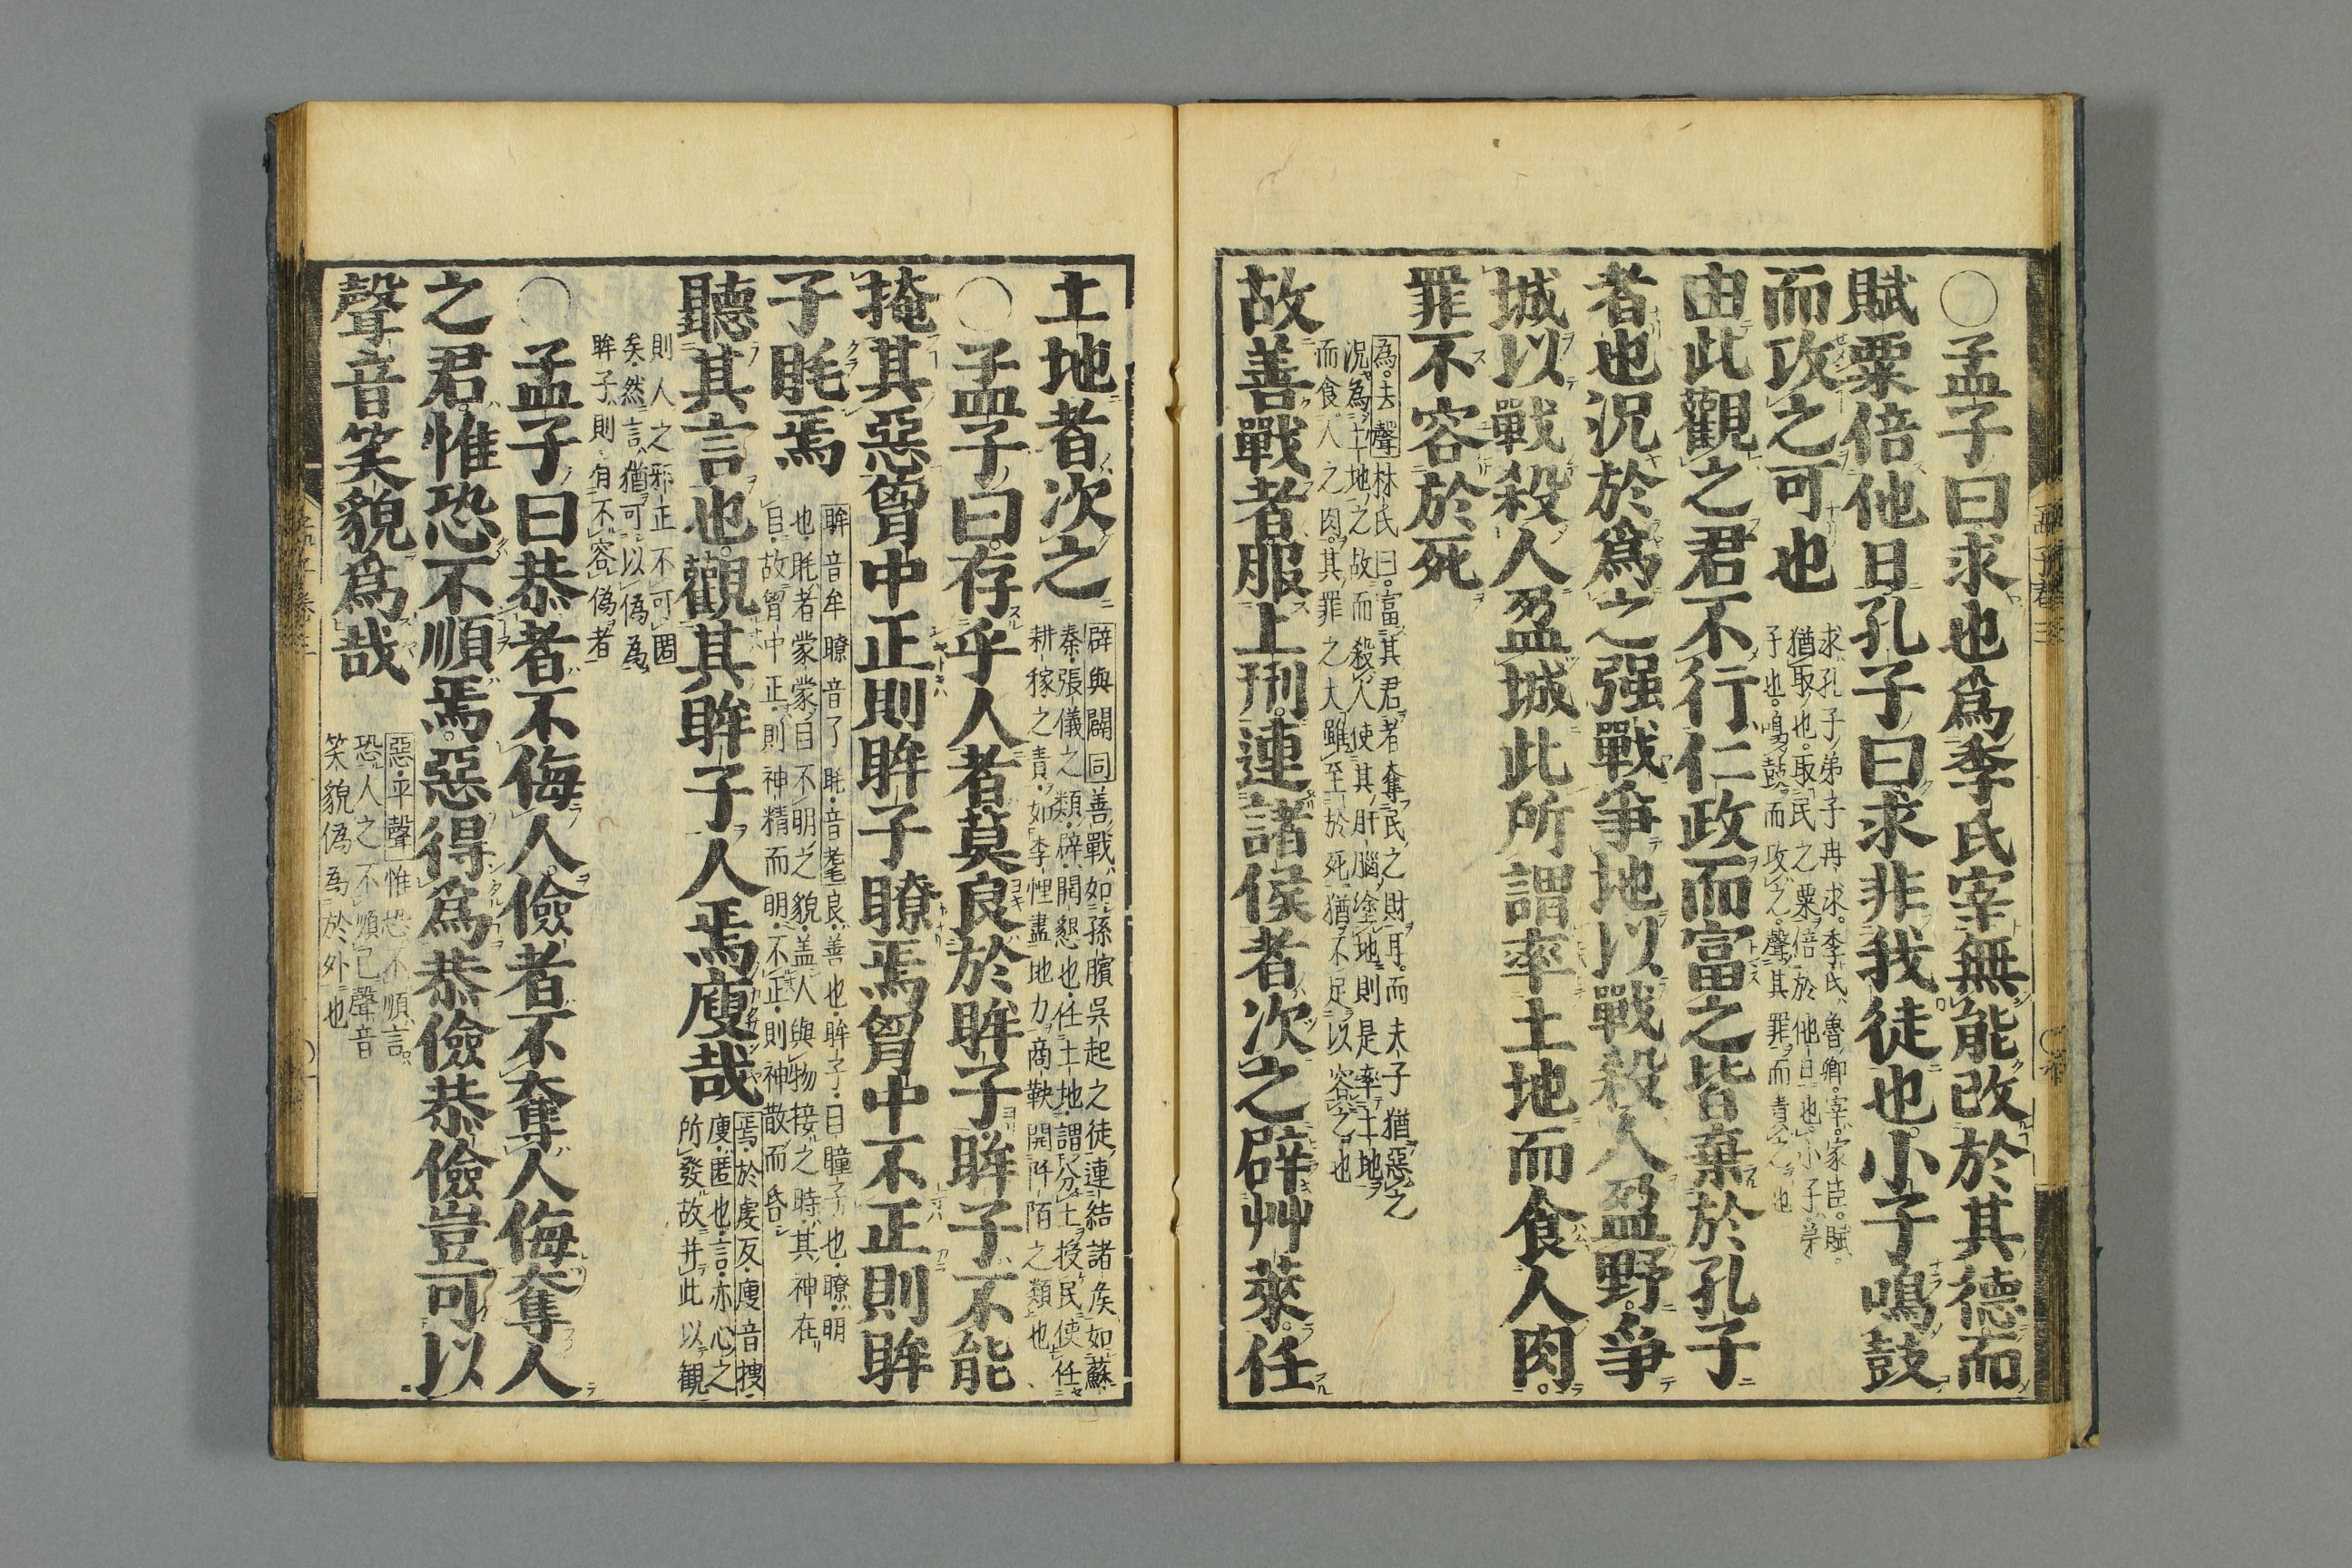 ○孟子曰求也爲季氏宰無能改於其德而
賦粟倍他日孔子曰求非我徒也小子鳴鼓
而攻之可也
求孔子弟子冉求季氏魯卿宰家臣賦
猶取也取民之粟倍於他日也小子弟
子也鳴鼓而攻之聲其罪而責之也
由此觀之君不行仁政而富之皆棄於孔子
者也況於爲之强戰爭地以戰殺人盈野爭
城以戰殺人盈城此所謂率土地而食人肉
罪不容於死
為去聲林氏曰富其君者奪民之財耳而夫子猶惡之
況為土地之故而殺人使其肝腦塗地則是率土地
而食人之肉其罪之大雖至於死猶不足以容之也
故善戰者服上刑連諸侯者次之辟艸萊任
土地者次之
辟與闢同善戰如孫臏吳起之徒連結諸矦如蘇
秦張儀之類辟開懇也任土地謂分土授民使任
耕稼之責如李悝盡地力商鞅開阡陌之類也
○孟子曰存乎人者莫良於眸子眸子不能
掩其惡胷中正則眸子瞭焉胷中不正則眸
子眊焉
眸音牟瞭音了眊音耄良善也眸子目瞳子也瞭明
也眊者蒙蒙目不明之貌盖人與物接之時其神在
目故胷中正則神精而明不正則神散而昏
聽其言也觀其眸子人焉廋哉
焉於虔反廋音搜
廋匿也言亦心之
所發故并此以観
則人之邪正不可匿
矣然言猶可以偽為
眸子則有不容偽者
○孟子曰恭者不侮人儉者不奪人侮奪人
之君惟恐不順焉惡得爲恭儉恭儉豈可以
聲音笑貌爲哉
惡平聲惟恐不順言
恐人之不順己聲音
笑貌偽為於外也